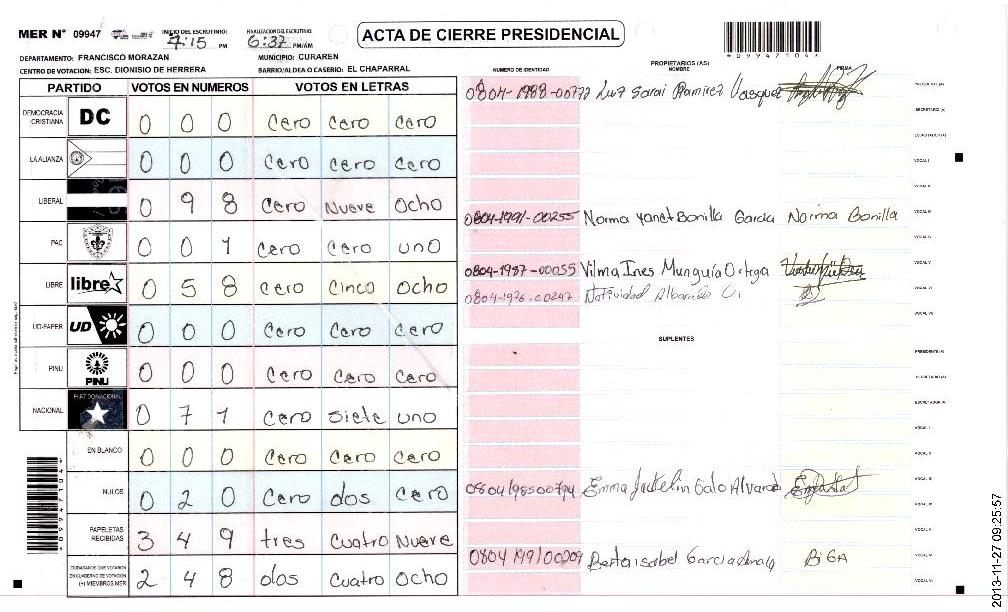 MER N° 09947 INICIO DEL ESCRUTINIO: 4:15 PM FINALIZACION DEL ESCRUTINIO 6:37 PM/AM ACTA DE CIERRE PRESIDENCIAL
DEPARTAMENTO: FRANCISCO MORAZAN MUNICIPIO: CURAREN
CENTRO DE VOTACION: ESC. DIONISIO DE HERRERA BARRIO/ALDEA O CASERIO: EL CHAPARRAL
PARTIDO VOTOS EN NUMEROS VOTOS EN LETRAS
DEMOCRACIA CRISTIANA DC 0 0 0 cero cero cero
LA ALIANZA 0 0 0 cero cero cero
LIBERAL 0 9 8 cero Nueve Ocho
PAC 0 0 1 cero cero uno
LIBRE libre 0 5 8 cero Cinco Ocho
UD-FAPER UD 0 0 0 cero cero cero
PINU PINU 0 0 0 cero cero cero
NACIONAL PARTIDO NACIONAL 0 7 1 cero siete uno
EN BLANCO 0 0 0 cero cero cero
NULOS 0 2 0 cero dos cero
PAPELETAS RECIBIDAS 3 4 9 tres cuatro Nueve
CIUDADANOS QUE VOTARON EN CUADERNO DE VOTACION (+) MIEMBROS MER 2 4 8 dos cuatro Ocho
*09947104*
NUMERO DE IDENTIDAD PROPIETARIOS (AS) NOMBRE FIRMA
0804-1988-00772 Luz Sarai Ramirez Vasquez PRESIDENTE (A)
SECRETARIO (A)
ESCRUTADOR (A)
VOCAL I
VOCAL II
0804-1991-00255 Norma Yanet Bonilla Garcia Norma Bonilla VOCAL III
VOCAL IV
0804-1987-00055 Vilma Ines Munguía Ortega VOCAL V
0804-1976-00247 Natividad VOCAL VI
VOCAL VII
SUPLENTES
PRESIDENTE (A)
SECRETARIO (A)
ESCRUTADOR (A)
VOCAL I
VOCAL II
0804198500794 Emma Jackelin Galo Alvarado VOCAL III
VOCAL IV
0804199100209 Berta isabel Garcia BiGA VOCAL V
VOCAL VI
*09947104*
2013-11-27 09:25:57